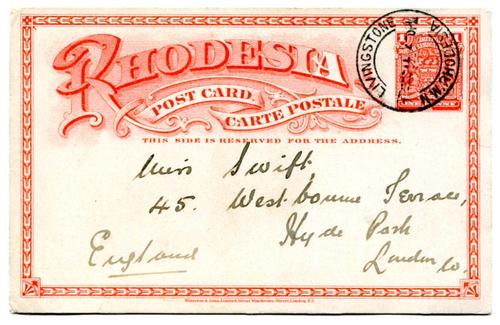 RHODESIA
POST CARD.
CARTE POSTALE
LIVINGSTONE
N.W. RHODESIA
THIS SIDE IS RESERVED FOR THE ADDRESS.
Miss Swift,
45. Westbourne Terrace,
Hyde Park
London W.
England
Waterlow & Sons Limited,
London, E.C.